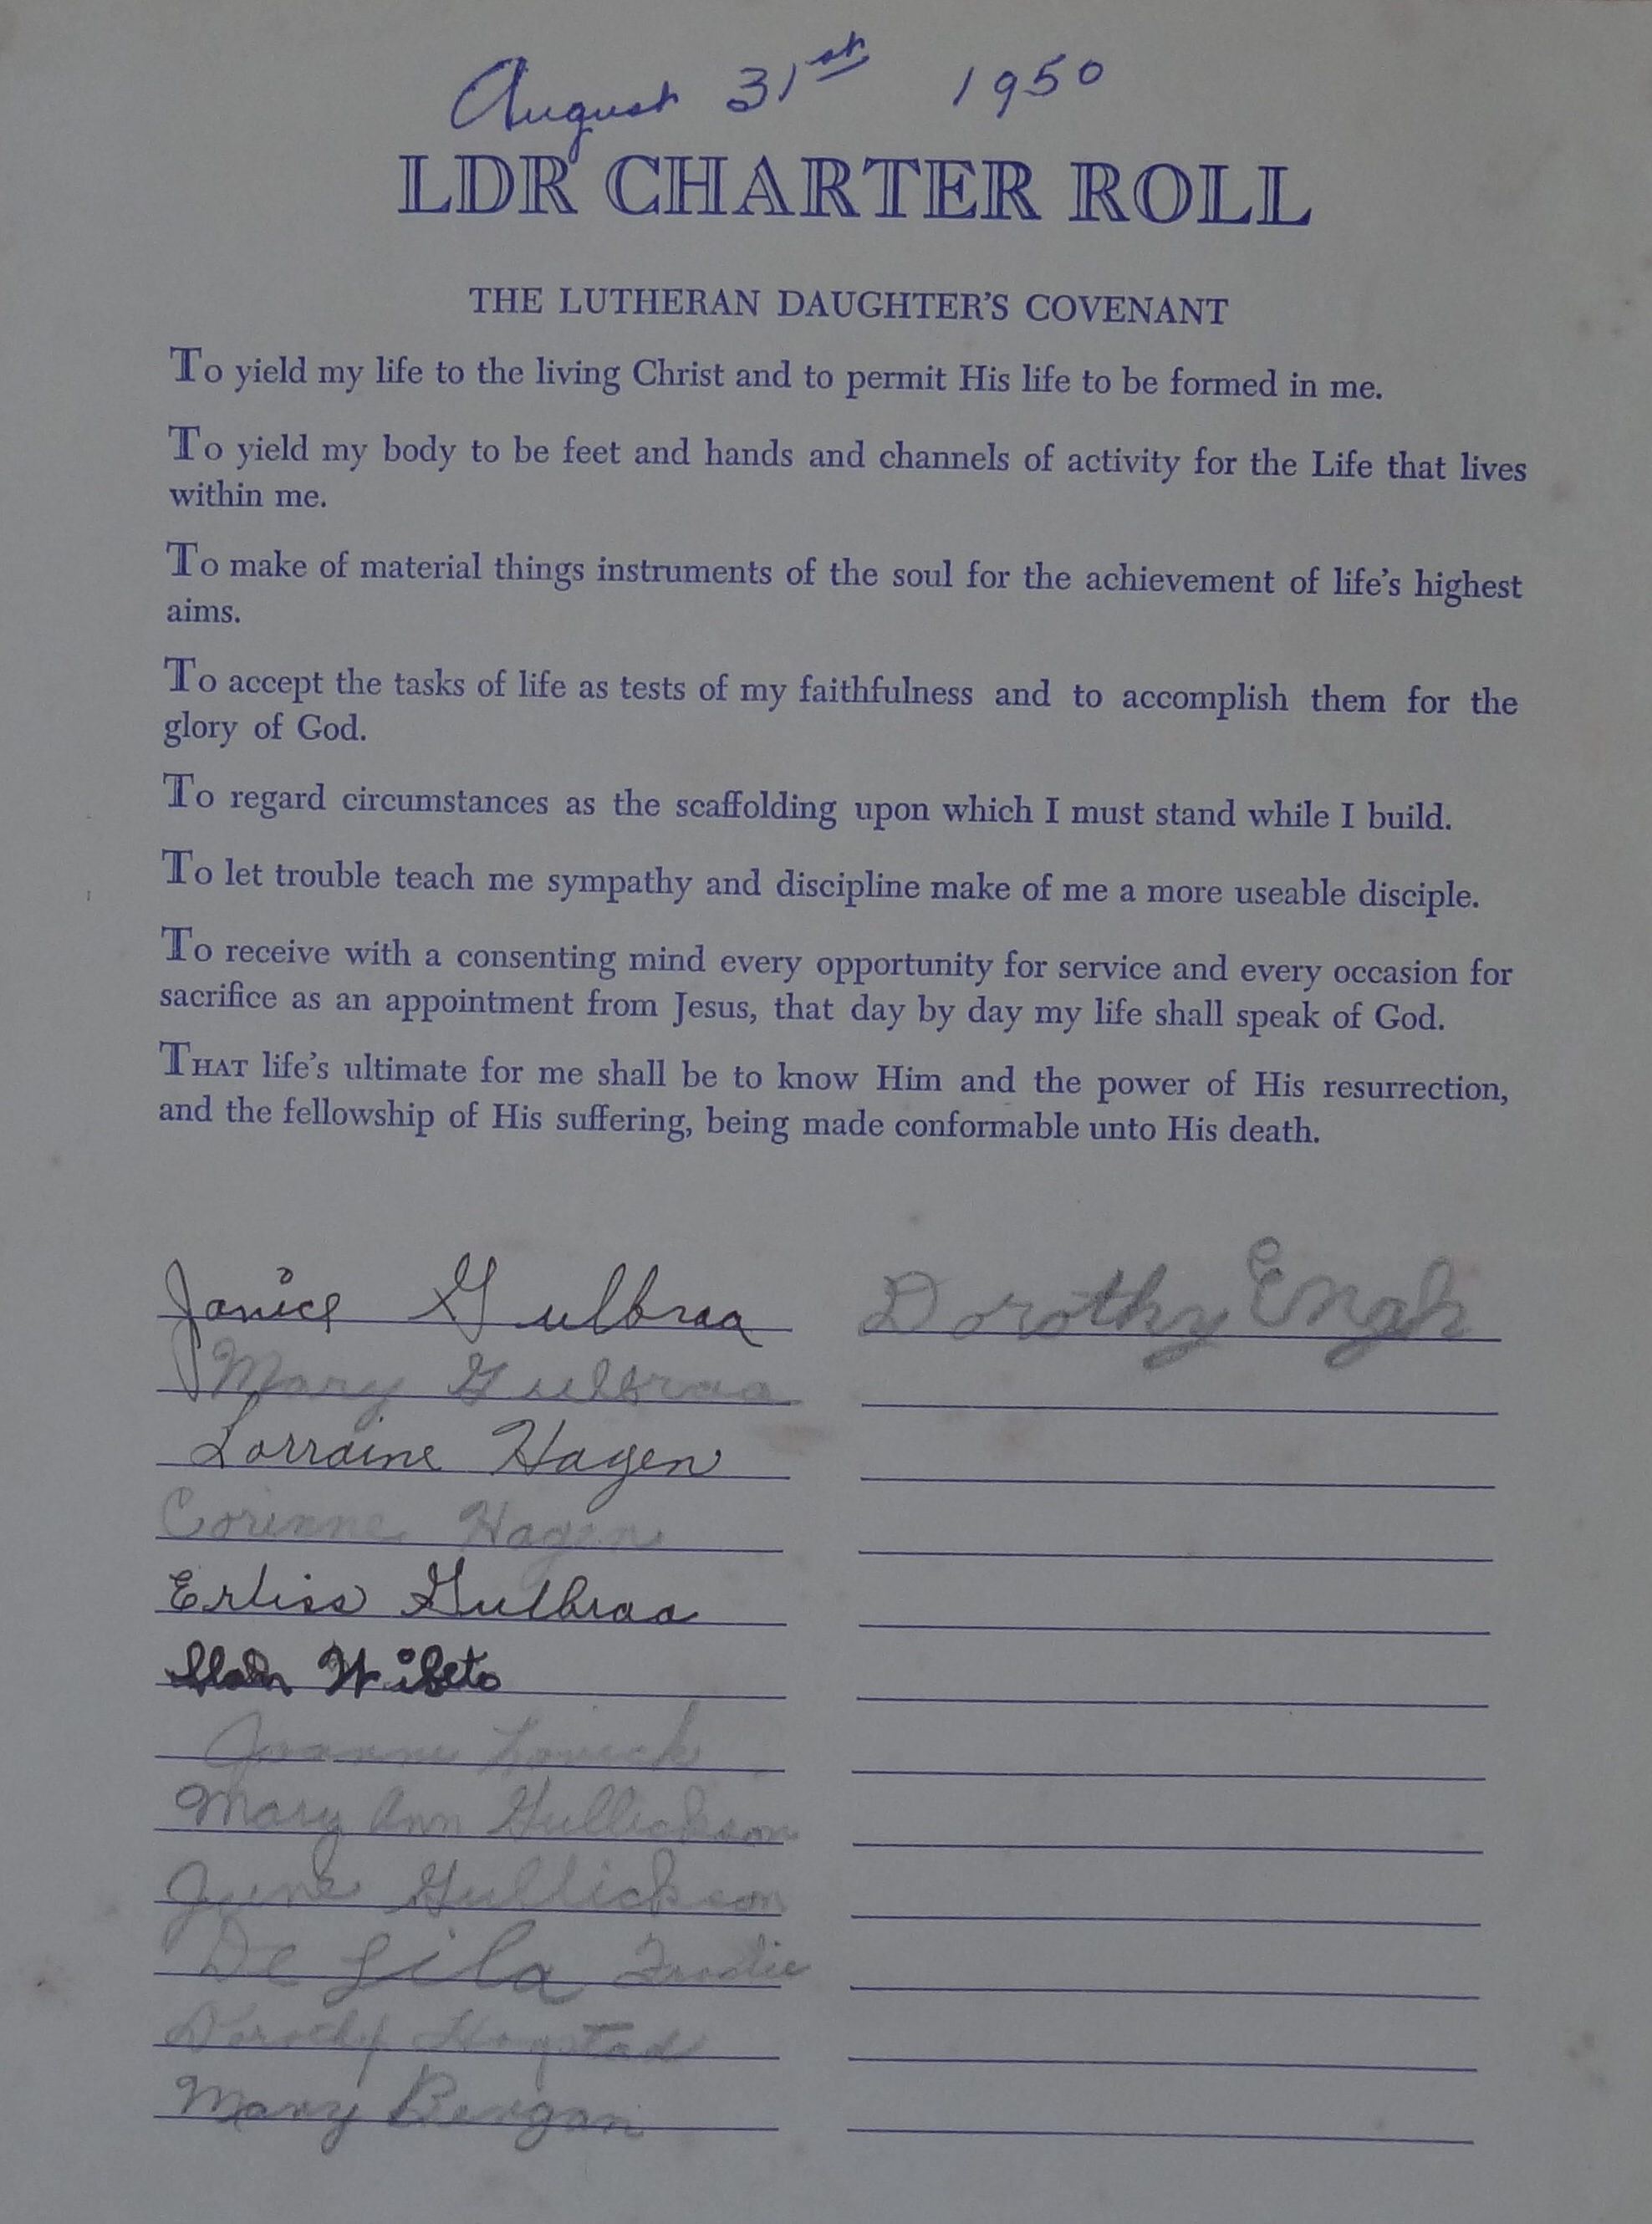 August 31st 1950
LDR CHARTER ROLL
THE LUTHERAN DAUGHTER'S COVENANT
To yield my life to the living Christ and to permit His life to be formed in me.
To yield my body to be feet and hands and channels of activity for the Life that lives
within me.
To make of material things instruments of the soul for the achievement of life's highest
aims.
To accept the tasks of life as tests of my faithfulness and to accomplish them for the
glory of God.
To regard circumstances as the scaffolding upon which I must stand while I build.
To let trouble teach me sympathy and discipline make of me a more useable disciple.
To receive with a consenting mind every opportunity for service and every occasion for
sacrifice as an appointment from Jesus, that day by day my life shall speak of God.
THAT life's ultimate for me shall be to know Him and the power of His resurrection,
and the fellowship of His suffering, being made conformable unto His death.
Janice Gulbraa
Mary Gulbraa
Lorraine Hagen
Corinne Hagen
Erliss Gulbraa
Wibeto
Joanne
Mary Ann Gullickson
June Gullickson
De Lila
Dorothy Hogstad
Mary Bergan
Dorothy Engh